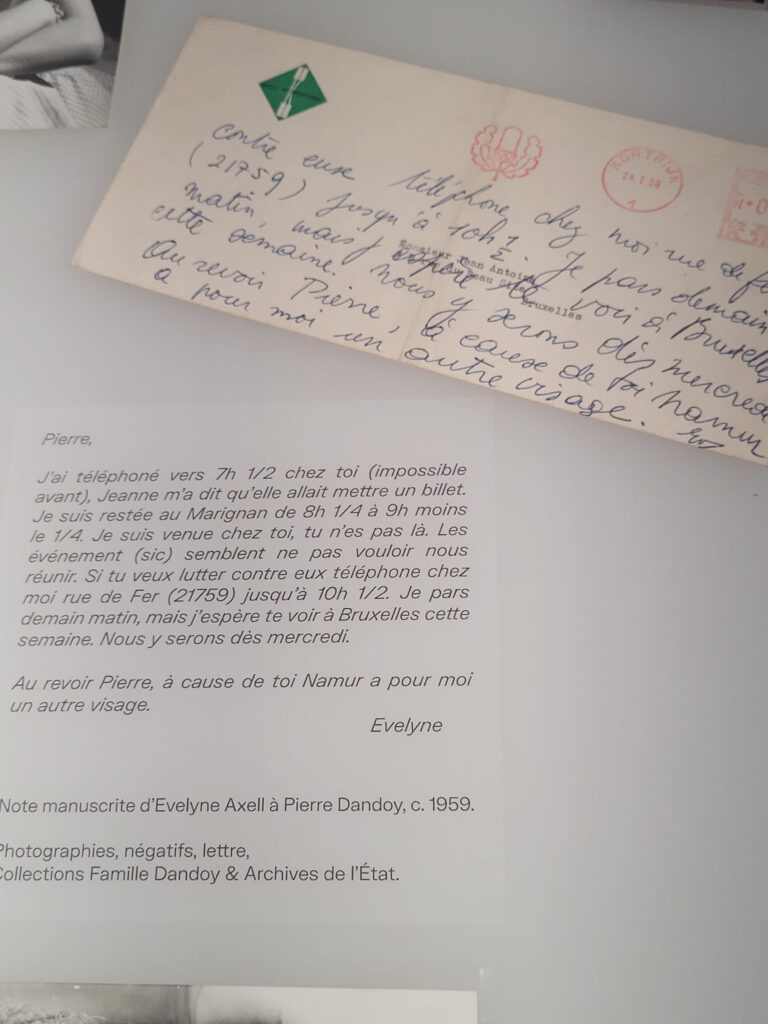 KORTRIJK
24.7.59
1
contre eux téléphone chez moi rue de fe
(21759) jusqu'à 10h 1/2. Je pars demain
matin, mais j'espère te voir à Bruxelles
cette semaine. Nous y serons dès mercred
Au revoir Pierre, à cause de toi Namur
a pour moi un autre visage.
Monsieur Jean Antoine
Beau Site
Bruxelles
Pierre,
J'ai téléphoné vers 7h 1/2 chez toi (impossible
avant), Jeanne m'a dit qu'elle allait mettre un billet.
Je suis restée au Marignan de 8h 1/4 à 9h moins
le 1/4. Je suis venue chez toi, tu n'es pas là. Les
événement (sic) semblent ne pas vouloir nous
réunir. Si tu veux lutter contre eux téléphone chez
moi rue de Fer (21759) jusqu'à 10h 1/2. Je pars
demain matin, mais j'espère te voir à Bruxelles cette
semaine. Nous y serons dès mercredi.
Au revoir Pierre, à cause de toi Namur a pour moi
un autre visage.
Evelyne
Note manuscrite d'Evelyne Axell à Pierre Dandoy, c. 1959.
Photographies, négatifs, lettre,
Collections Famille Dandoy & Archives de l'État.